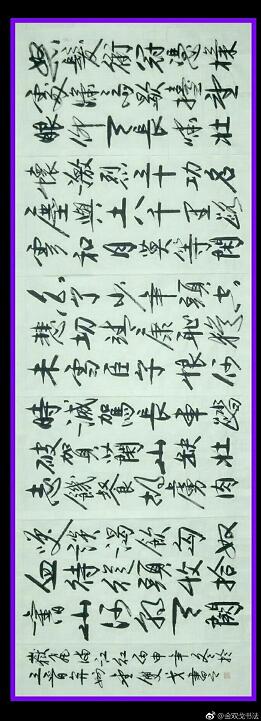 怒髮衝冠憑欄
處瀟雨歇擡望
眼仰天長嘯壯
懷激烈三十功名
塵與土八千里路
雲和月莫等閒
白了少年頭空
悲切靖康恥猶
未雪臣子恨何
時滅駕長車踏
破賀蘭山缺壯
志飢餐胡虜肉
笑談渴飲匈奴
血待從頭收拾
舊山河朝天闕
岳飛滿江红丙申年冬於
@金双戈书法